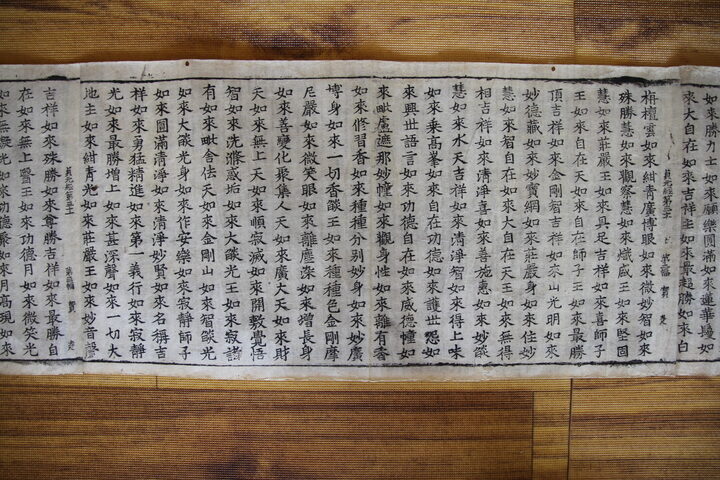 如來勝力士如來願樂圓滿如來蓮華場如
來大自在如來吉祥主如來最超勝如來白
貞元經第五十
栴檀雲如來紺青廣博眼如來微妙智如來
殊勝慧如來觀察慧如來熾威王如來堅固
慧如來莊嚴王如來具足吉祥如來喜師子
王如來自在天如來自在師子王如來最勝
頂吉祥如來金剛智如來山光明如來
妙德藏如來妙寶網如來莊嚴身如來住妙
慧如來智自在如來大自在天王如來無得
相吉祥如來清淨喜如來善施惠如來妙燄
慧如來水天吉祥如來清淨智如來得上味
如來乘高峯如來自在功德如來護世怨如
來興世語言如來功德自在如來威德幢如
來毗盧遮那妙幢如來觀身性如來離有香
如來修習香如來種種分別妙身如來妙廣
博身如來一切香燄王如來種種色金剛摩
尼嚴如來微笑眼如來離塵深如來增長身
如來善變化聚集人天如來廣大天如來財
天如來無上天如來順寂滅如來開敷覺悟
智如來洗滌惑垢如來大燄光王如來寂諸
有如來毗舍佉天如來金剛山如來智燄光
如來大燄光身如來作安樂如來寂靜師子
如來圓滿清淨如來清淨妙賢如來名稱吉
祥如來勇猛精進如來第一義行如來寂靜
光如來最勝增上如來甚深聲如來一切大
地主如來紺青光如來莊嚴王如來妙音聲
貞元經第五十
吉祥如來殊勝如來尊勝吉祥如來最勝自
在如來無上毉王如來功德月如來微笑光
如來無礙光如來功德聚如來月高現如來